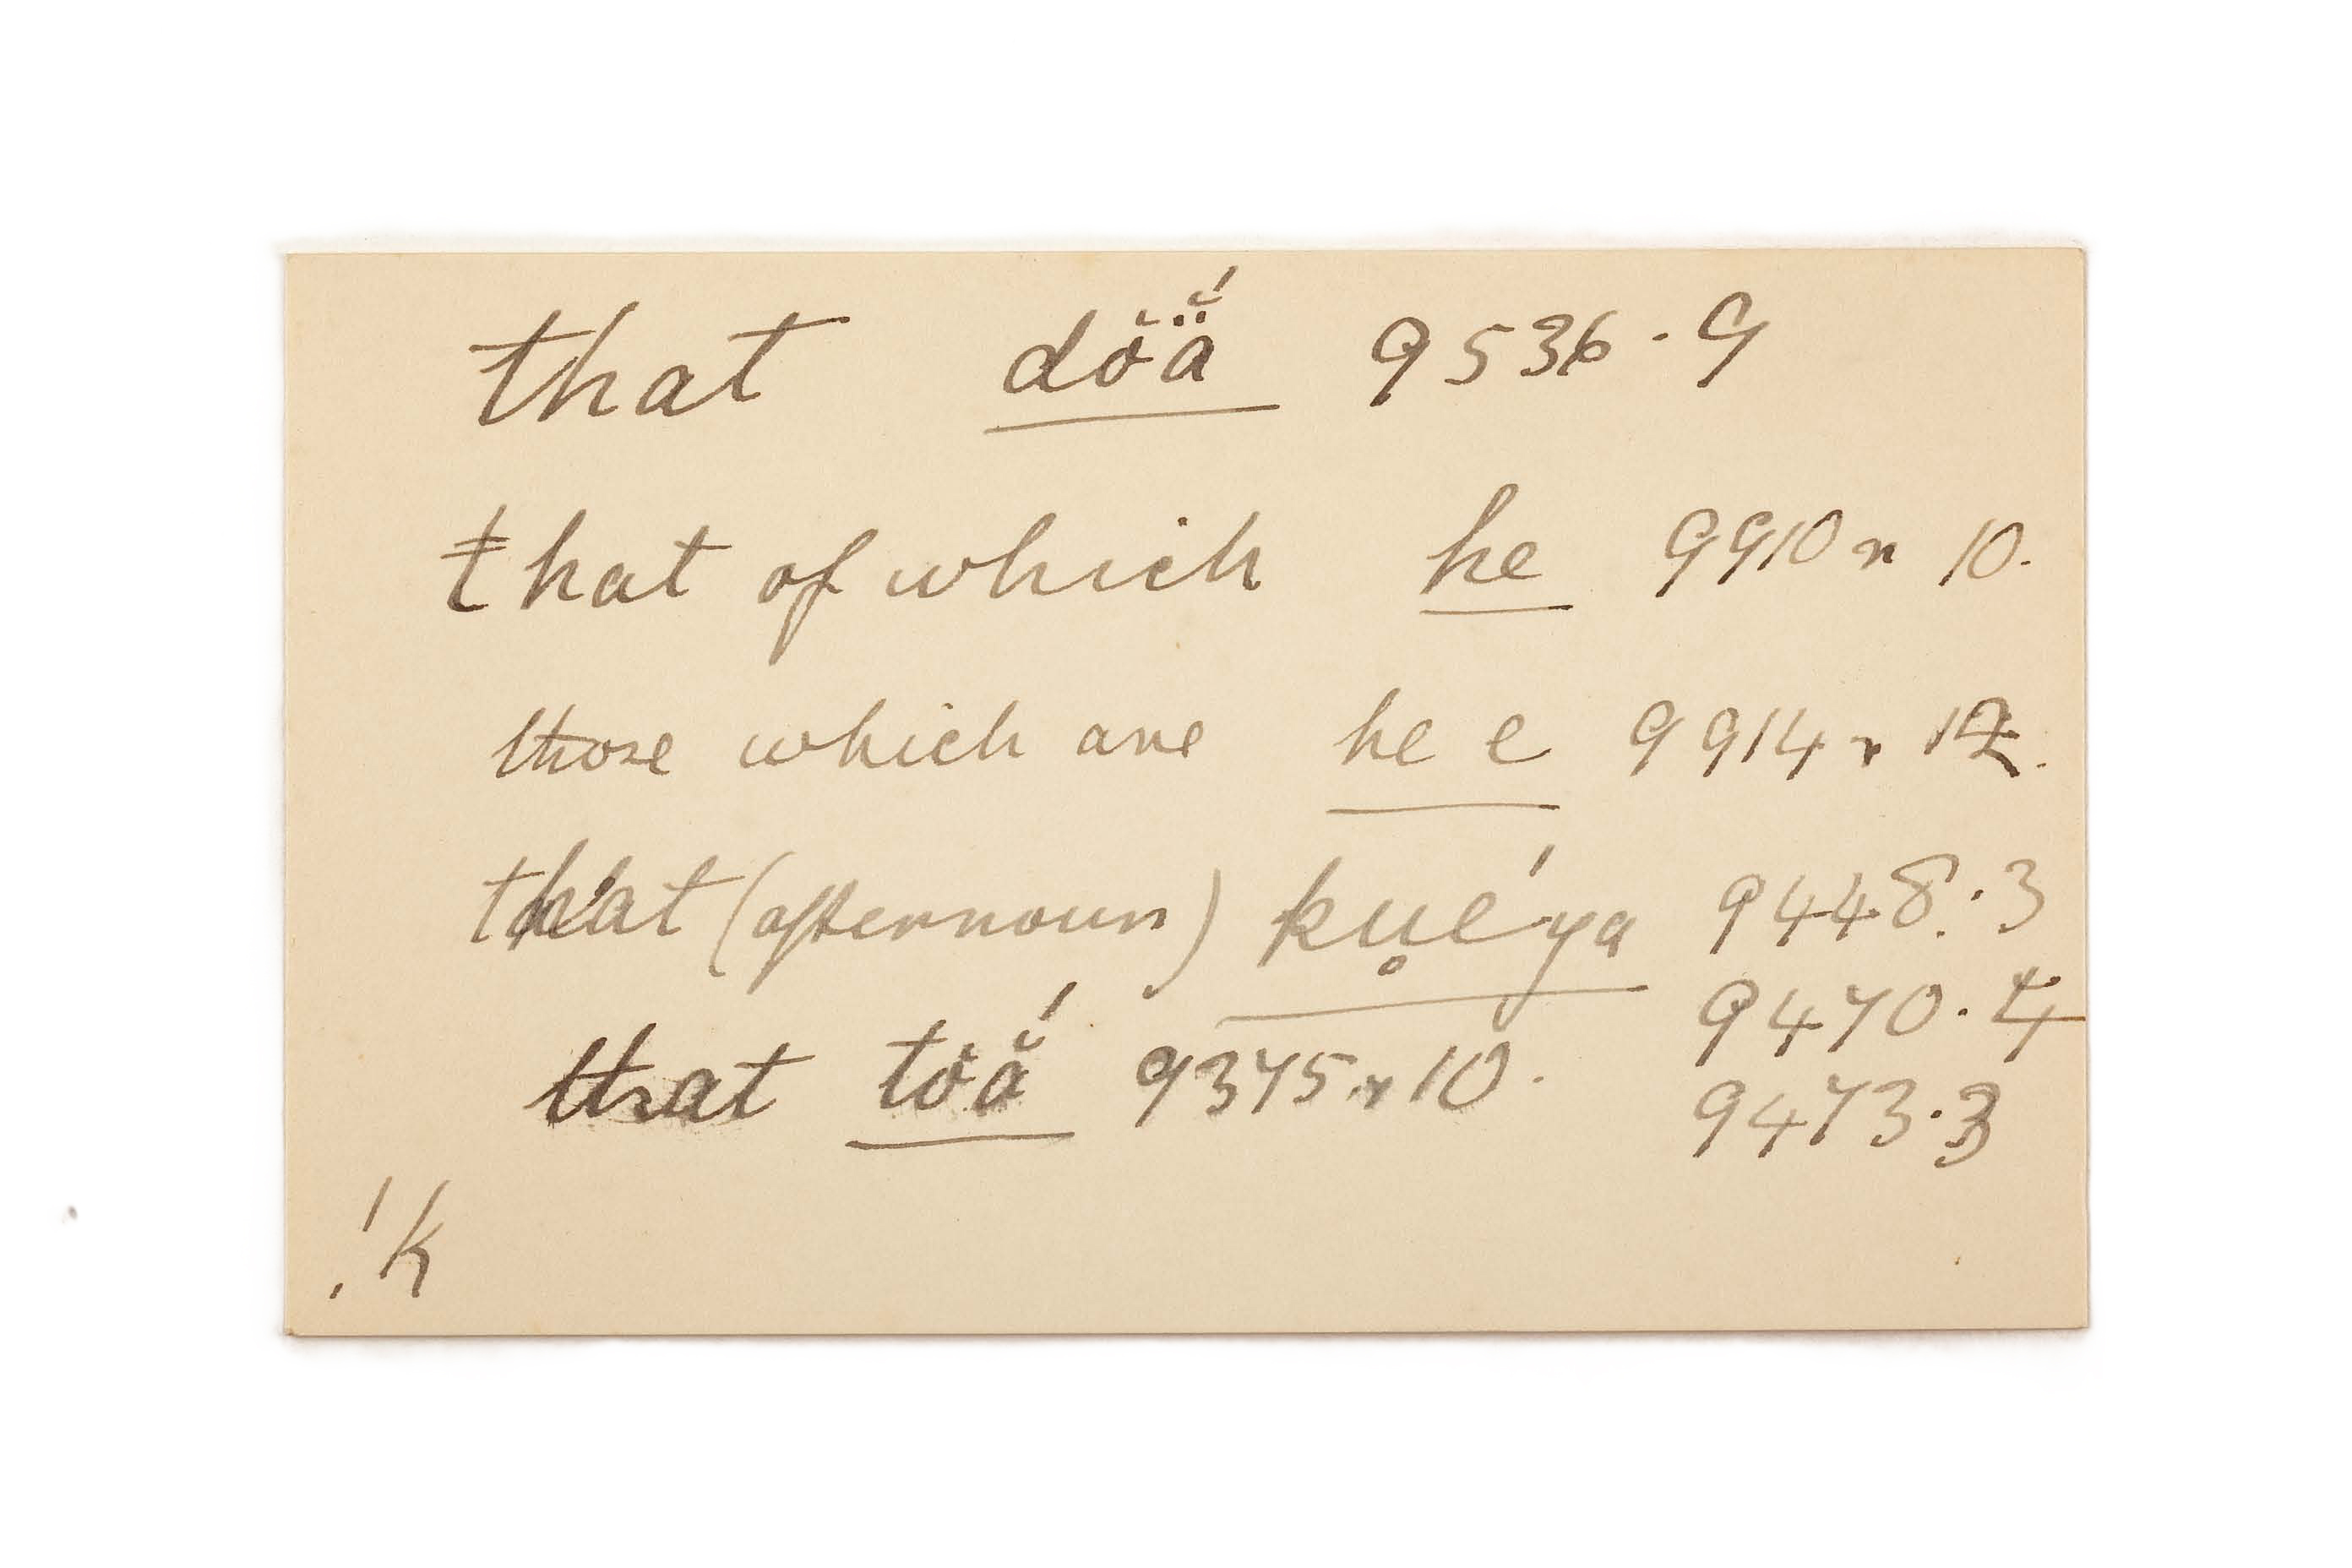 that dŏä̆́ 9536.9
that of which he 9910 n 10.
those which are he e 9914 r 12.
that (afternoun) ku̥é́ya 9448.3
9470.4
that tŏắ 9375 r 10.
9473.3
!k